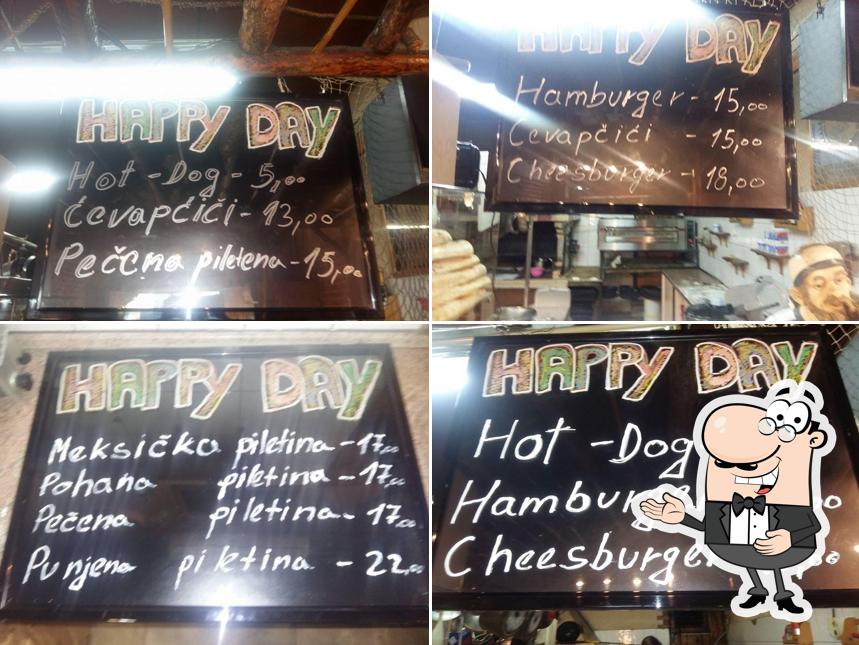 HAPPY DAY
Hot-Dog - 5,00
Ćevapčići - 13,00
Pečena piletena - 15,00
HAPPY DAY
Hamburger - 15,00
Ćevapčići - 15,00
Cheesburger - 18,00
HAPPY DAY
Meksička piletina - 17,00
Pohana piletina - 17,00
Pečena piletina - 17,00
Punjena piletina - 22,00
HAPPY DAY
Hot-Dog
Hamburge
Cheesburger